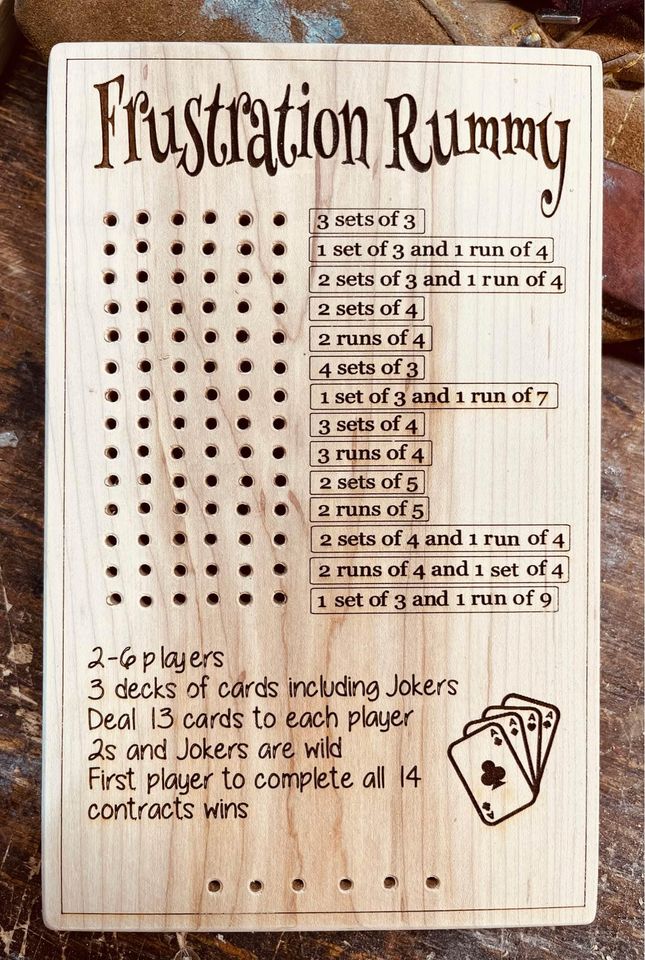 Frustration Rummy
3 sets of 3
1 set of 3 and 1 run of 4
2 sets of 3 and 1 run of 4
2 sets of 4
2 runs of 4
4 sets of 3
1 set of 3 and 1 run of 7
3 sets of 4
3 runs of 4
2 sets of 5
2 runs of 5
2 sets of 4 and 1 run of 4
2 runs of 4 and 1 set of 4
1 set of 3 and 1 run of 9
2-6 players
3 decks of cards including Jokers
Deal 13 cards to each player
2s and Jokers are wild
First player to complete all 14
contracts wins
A A A A
A